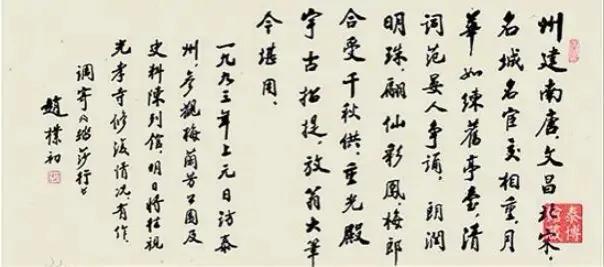 州建南唐，文昌北宋，
名城名宦交相重。月
華如練舊亭臺，清
詞范晏人争誦。朗潤
明珠，翩仙彩鳳，梅郎
合受千秋供。重光殿
宇古招提，放翁大筆
今堪用。
一九九三年上元日访泰
州，参觀梅蘭芳公園及
史料陳列館，明日將往視
光孝寺修復情况，有作，
调寄踏莎行
趙樸初
泰博